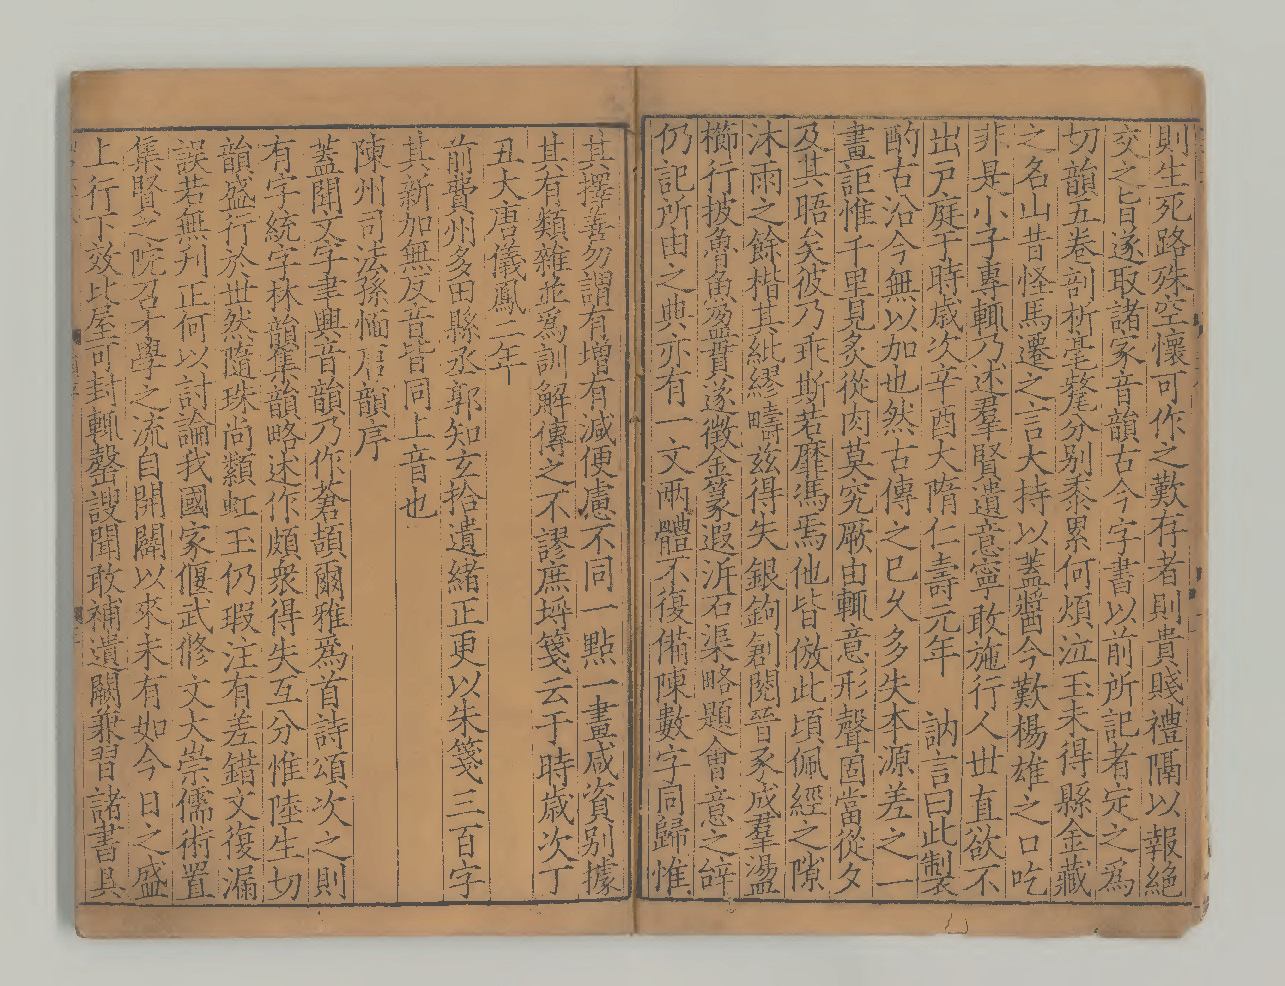 則生死路殊空懷可作之歎存者則貴賤禮隔以報絕
交之旨遂取諸家音韻古今字書以前所記者定之為
切韻五卷剖析毫氂分別黍累何煩泣玉未得縣金藏
之名山昔怪馬遷之言大持以蓋醬今歎楊雄之口吃
非是小子專輒乃述羣賢遺意寧敢施行人世直欲不
出戸庭于時歲次辛酉大隋仁壽元年 訥言曰此製
酌古沿今無以加也然古傳之已久多失本源差之一
畫詎惟千里見炙從肉莫究厥由輒意形聲固當從夕
及其晤矣彼乃乖斯若靡馮焉他皆倣此頃佩經之隙
沐雨之餘楷其紕繆疇茲得失銀鉤創閱晉豕成羣盪
櫛行披魯魚盈貫遂徵金篆遐泝石渠略題會意之辝
仍記所由之典亦有一文兩體不復備陳數字同歸惟
其擇善勿謂有增有減便慮不同一點一畫咸資別據
其有類雜並為訓解傳之不謬庶埒箋云于時歲次丁
丑大唐儀鳳二年
前費州多田縣丞郭知玄拾遺緒正更以朱箋三百字
其新加無反音皆同上音也
陳州司法孫愐唐韻序
蓋聞文字聿興音韻乃作蒼頡爾雅為首詩頌次之則
有字統字林韻集韻略述作頗衆得失互分惟陸生切
韻盛行於世然隋珠尚纇虹玉仍瑕注有差錯文復漏
誤若無刋正何以討論我國家偃武修文大崇儒術置
集賢之院召才學之流自開闢以來未有如今日之盛
上行下效比屋可封輒罄謏聞敢補遺闕兼習諸書具